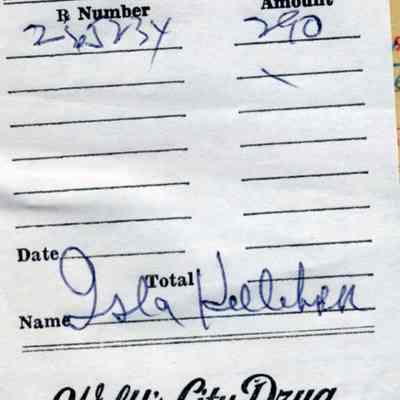 ℞ Number Amount
290
Date
Total
Name Isla Kelleher
City Drug